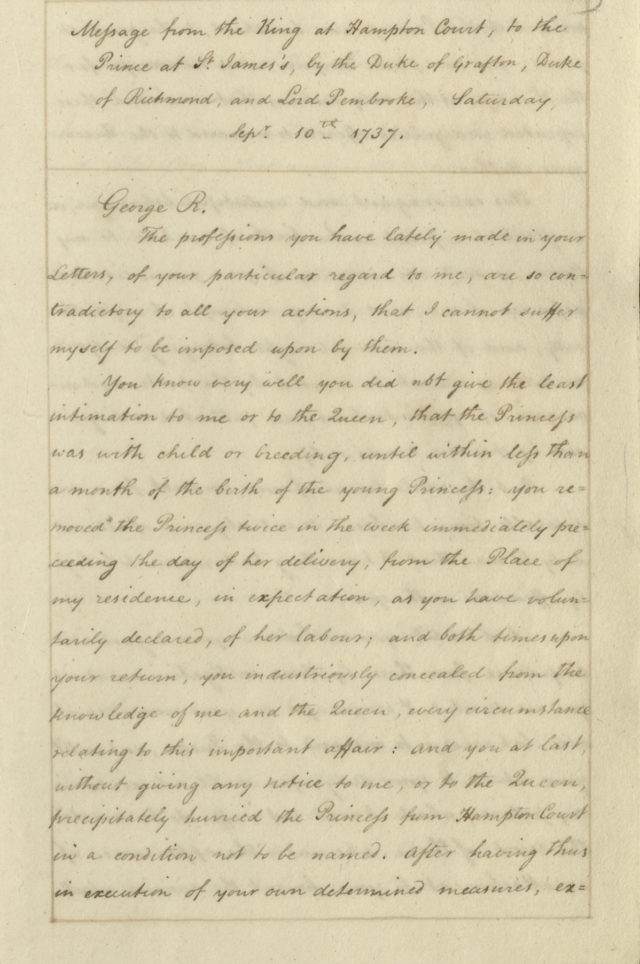 Message from the King at Hampton Court, to the
Prince at St. James's, by the Duke of Grafton, Duke
of Richmond, and Lord Pembroke, Saturday,
Sepr. 10th 1737.
George R.
The professions you have lately made in your
Letters, of your particular regard to me, are so con=
tradictory to all your actions, that I cannot suffer
myself to be imposed upon by them.
You know very well you did not give the least
intimation to me or to the Queen, that the Princess
was with child or breeding, until within less than
a month of the birth of the young Princess: you re=
moved the Princess twice in the week immediately pre=
ceeding the day of her delivery, from the Place of
my residence, in expectation, as you have volun=
tarily declared, of her labour; and both times upon
your return, you industriously concealed from the
knowledge of me and the Queen, every circumstance
relating to this important affair: and you at last,
without giving any notice to me, or to the Queen,
precipitately hurried the Princess from Hampton Court
in a condition not to be named. After having thus
in execution of your own determined measures, ex=